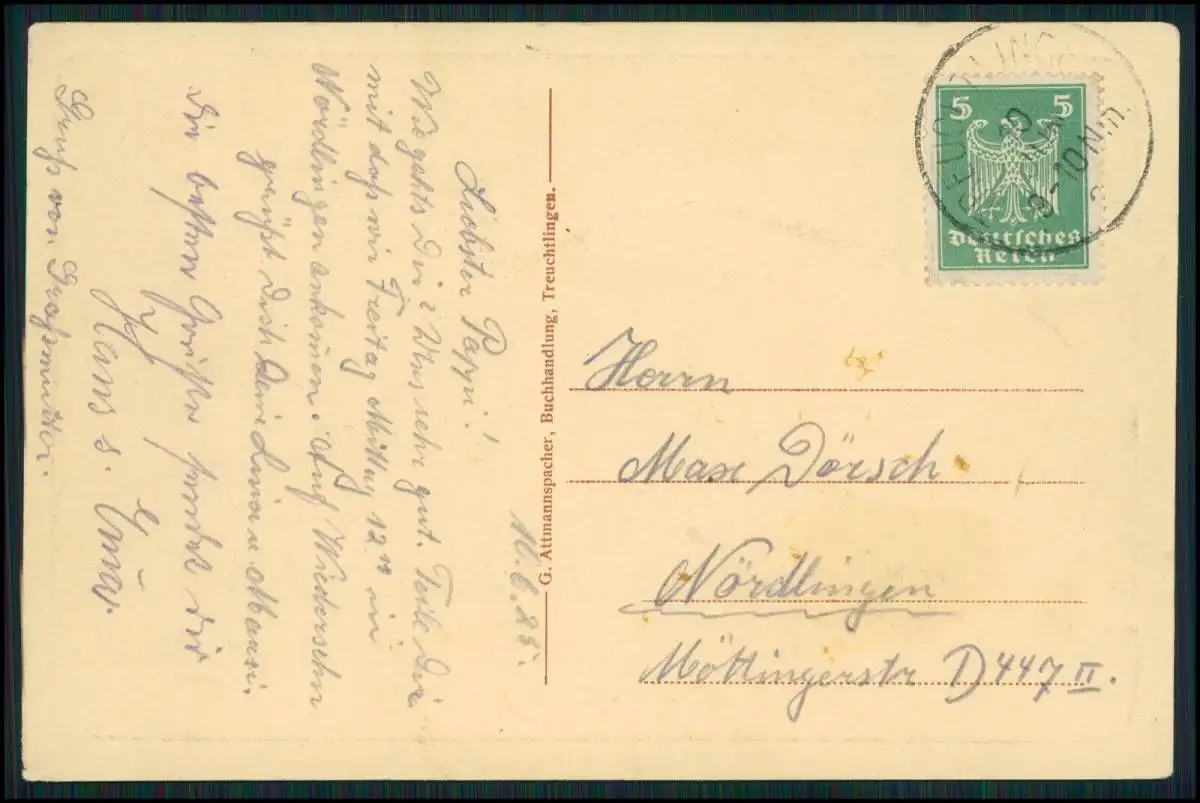 Liebster Pappi!
Wie gehts Dir? Uns sehr gut. Teile Dir
mit daß wir Freitag Mittag 12 in
Nördlingen ankomen. Auf Wiedersehn
grüßt Dich Deine Mausi.
Die besten Grüße sendet Dir
Hans
Gruß von Großmutter.
G. Attmannspacher, Buchhandlung, Treuchtlingen.
5 5
Deutsches
Reich
TREUCHTLINGEN
9-10 Nm.
Herrn
Max Dörsch
Nördlingen
Möttingerstr D 447 II.